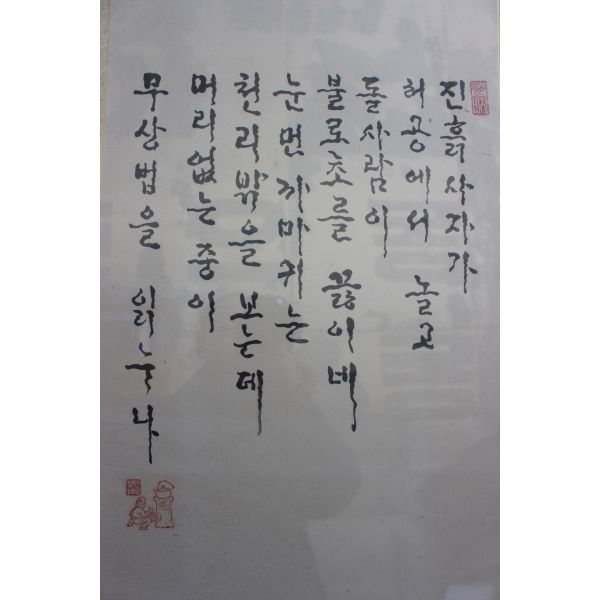 진흙사자가
허공에서 놀고
돌사람이
불로초를 끓이네
눈먼 까마귀는
천리 밖을 보는데
머리없는 중이
무상법을 읽누나